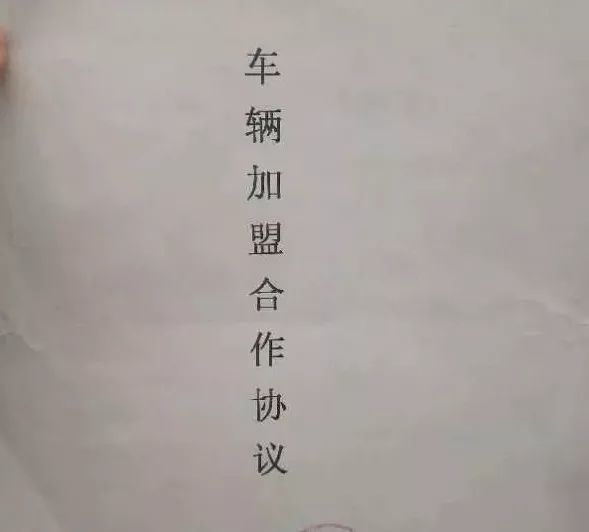 车辆加盟合作协议